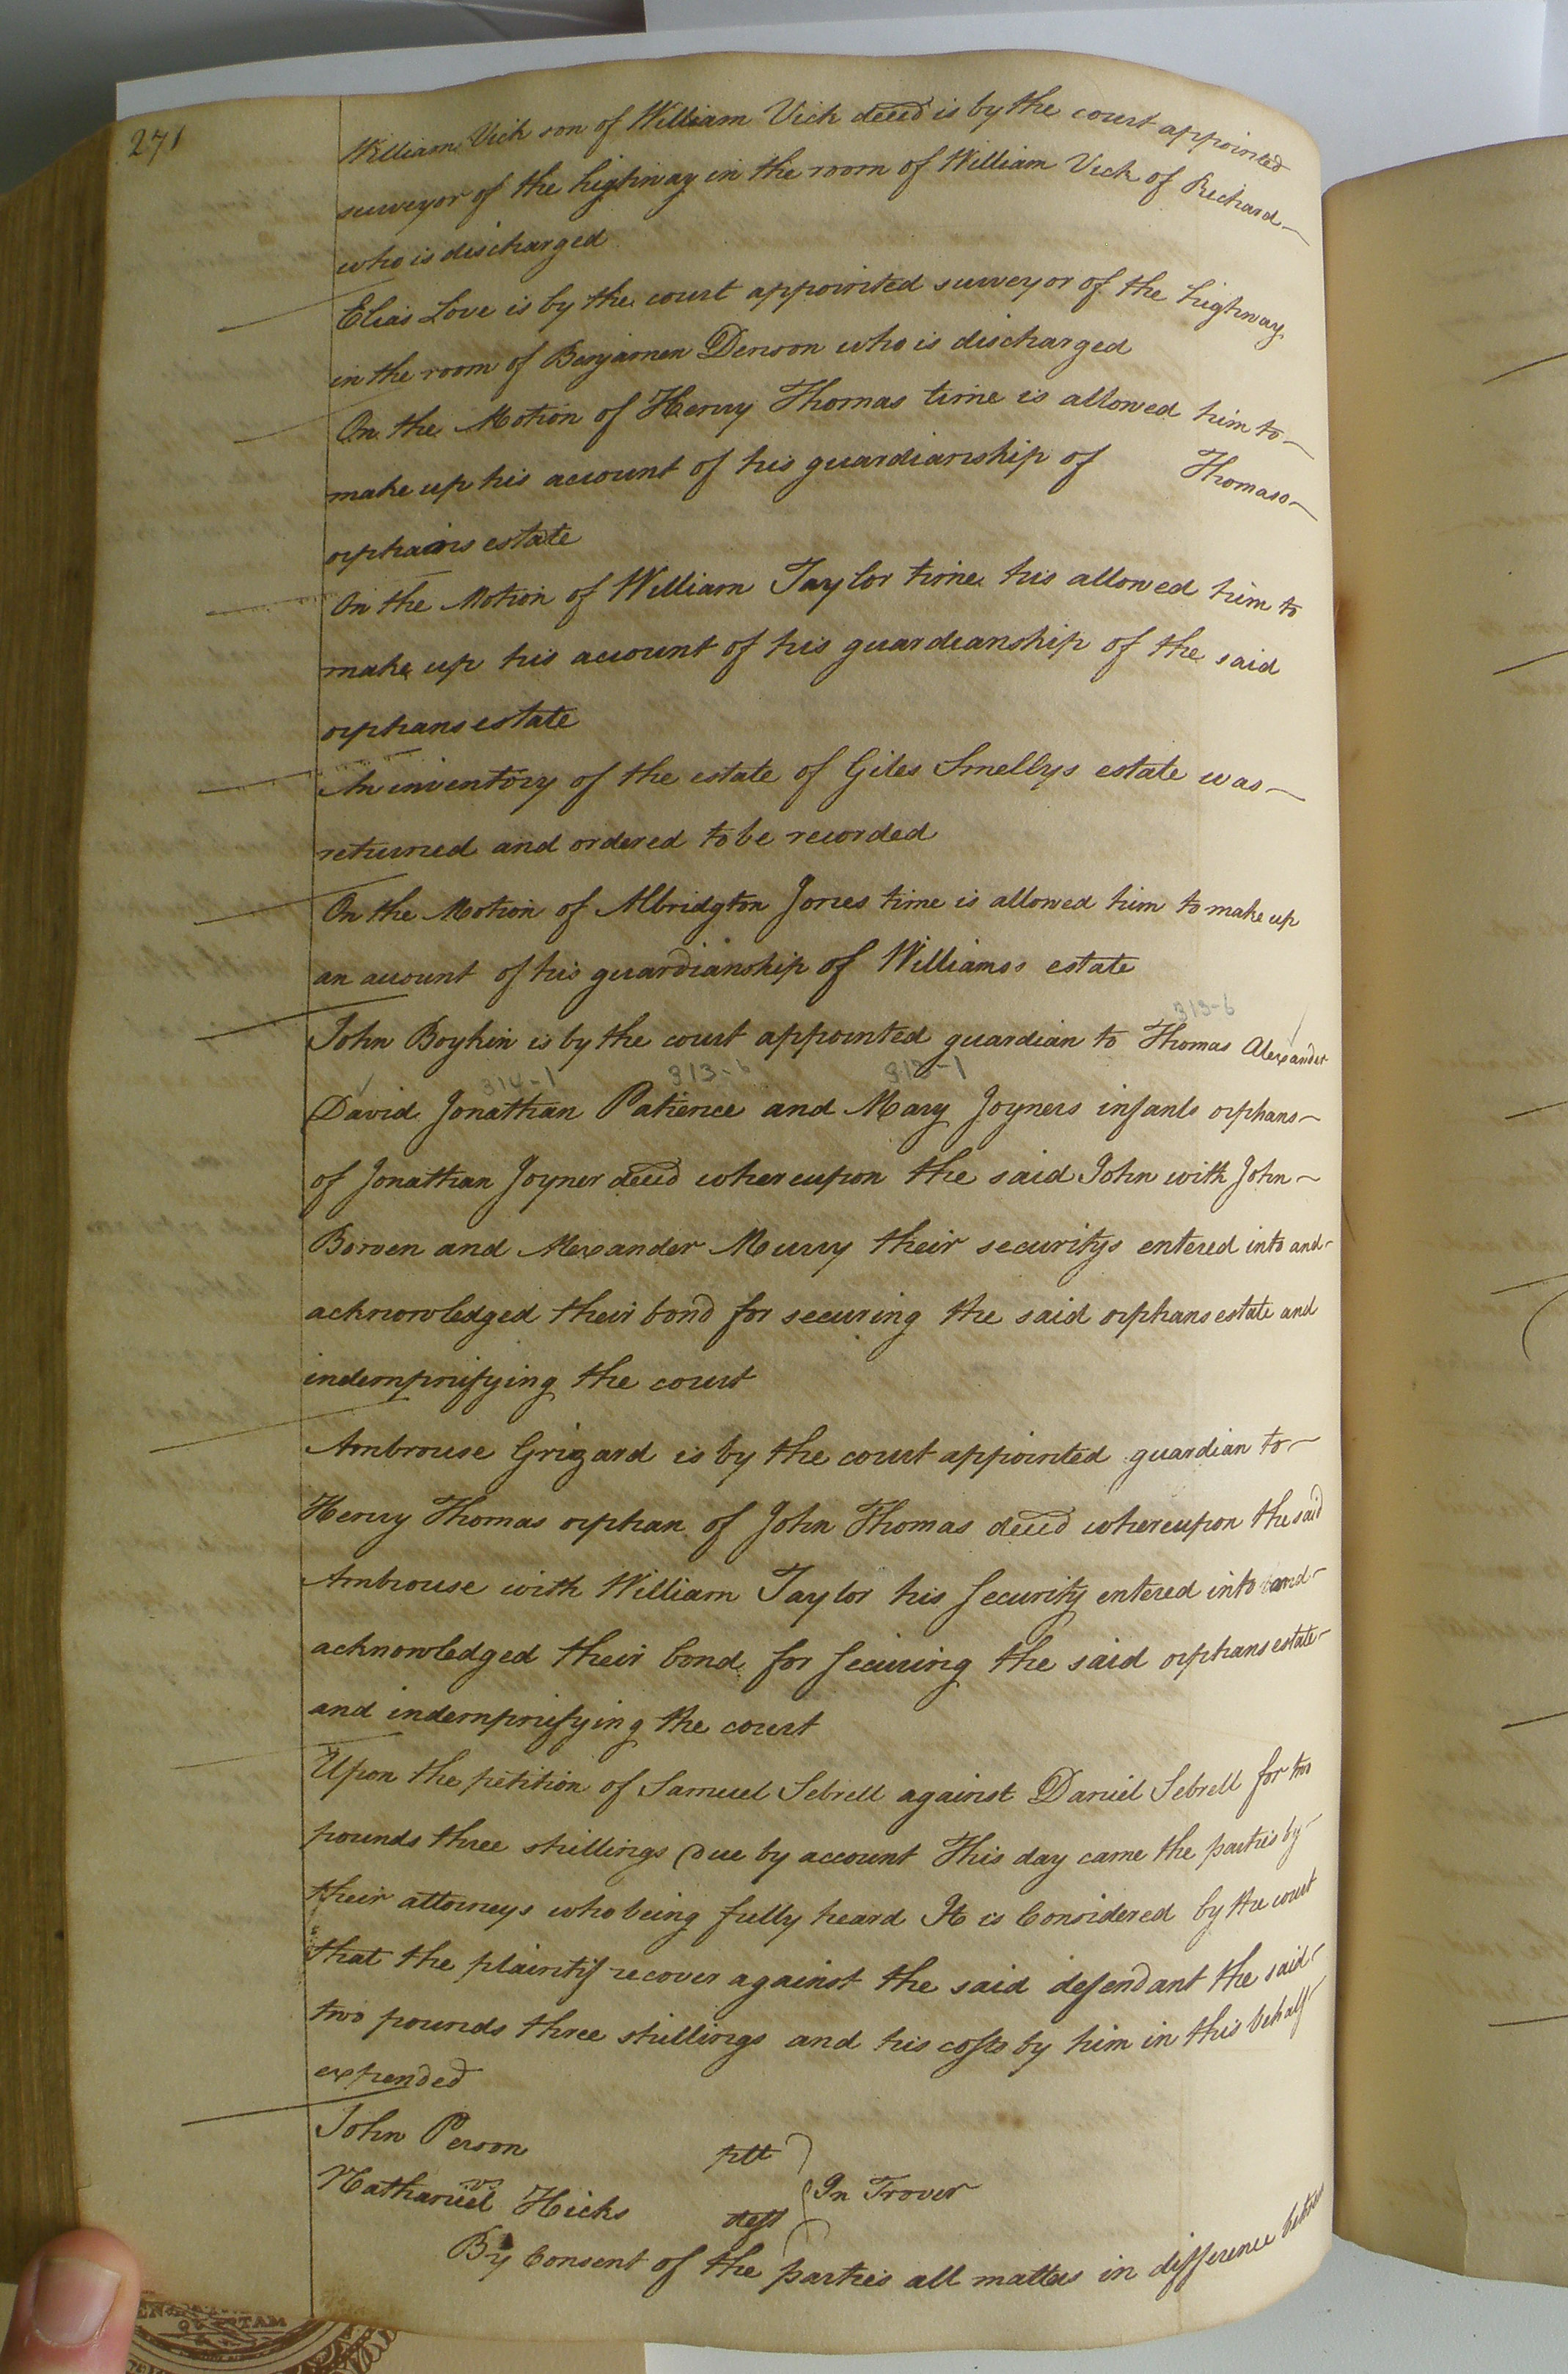 271
William Vick son of William Vick decēd is by the court appointed
surveyor of the highway in the room of William Vick of Richard
who is discharged
Elias Love is by the court appointed surveyor of the highway
in the room of Benjamen Denson who is discharged
On the Motion of Henry Thomas time is allowed him to
make up his account of his guardianship of Thomass
orphans estate
On the Motion of William Taylor time his allowed him to
make up his account of his guardianship of the said
orphans estate
An inventory of the estate of Giles Smellys estate was
returned and ordered to be recorded
On the Motion of Albridgton Jones time is allowed him to make up
an account of his guardianship of Williamss estate
313-6
John Boykin is by the court appointed guardian to Thomas Alexander
314-1 313-6 313-1
David Jonathan Patience and Mary Joyners infants orphans
of Jonathan Joyner decēd whereupon the said John with John
Bowen and Alexander Murry their securitys entered into and
acknowledged their bond for securing the said orphans estate and
indempnifying the court
Ambrouse Grizard is by the court appointed guardian to
Henry Thomas orphan of John Thomas decēd whereupon the said
Ambrouse with William Taylor his security entered into and
acknowledged their bond for securing the said orphans estate
and indempnifying the court
Upon the petition of Samuel Sebrell against Daniel Sebrell for two
pounds three shillings due by account This day came the parties by
their attorneys who being fully heard It is Considered by the court
that the plaintif recover against the said defendant the said
two pounds three shillings and his costs by him in this behalf
expended
John Person plt
vs
Nathaniel Hicks deft
In Trover
By Consent of the parties all matters in difference between